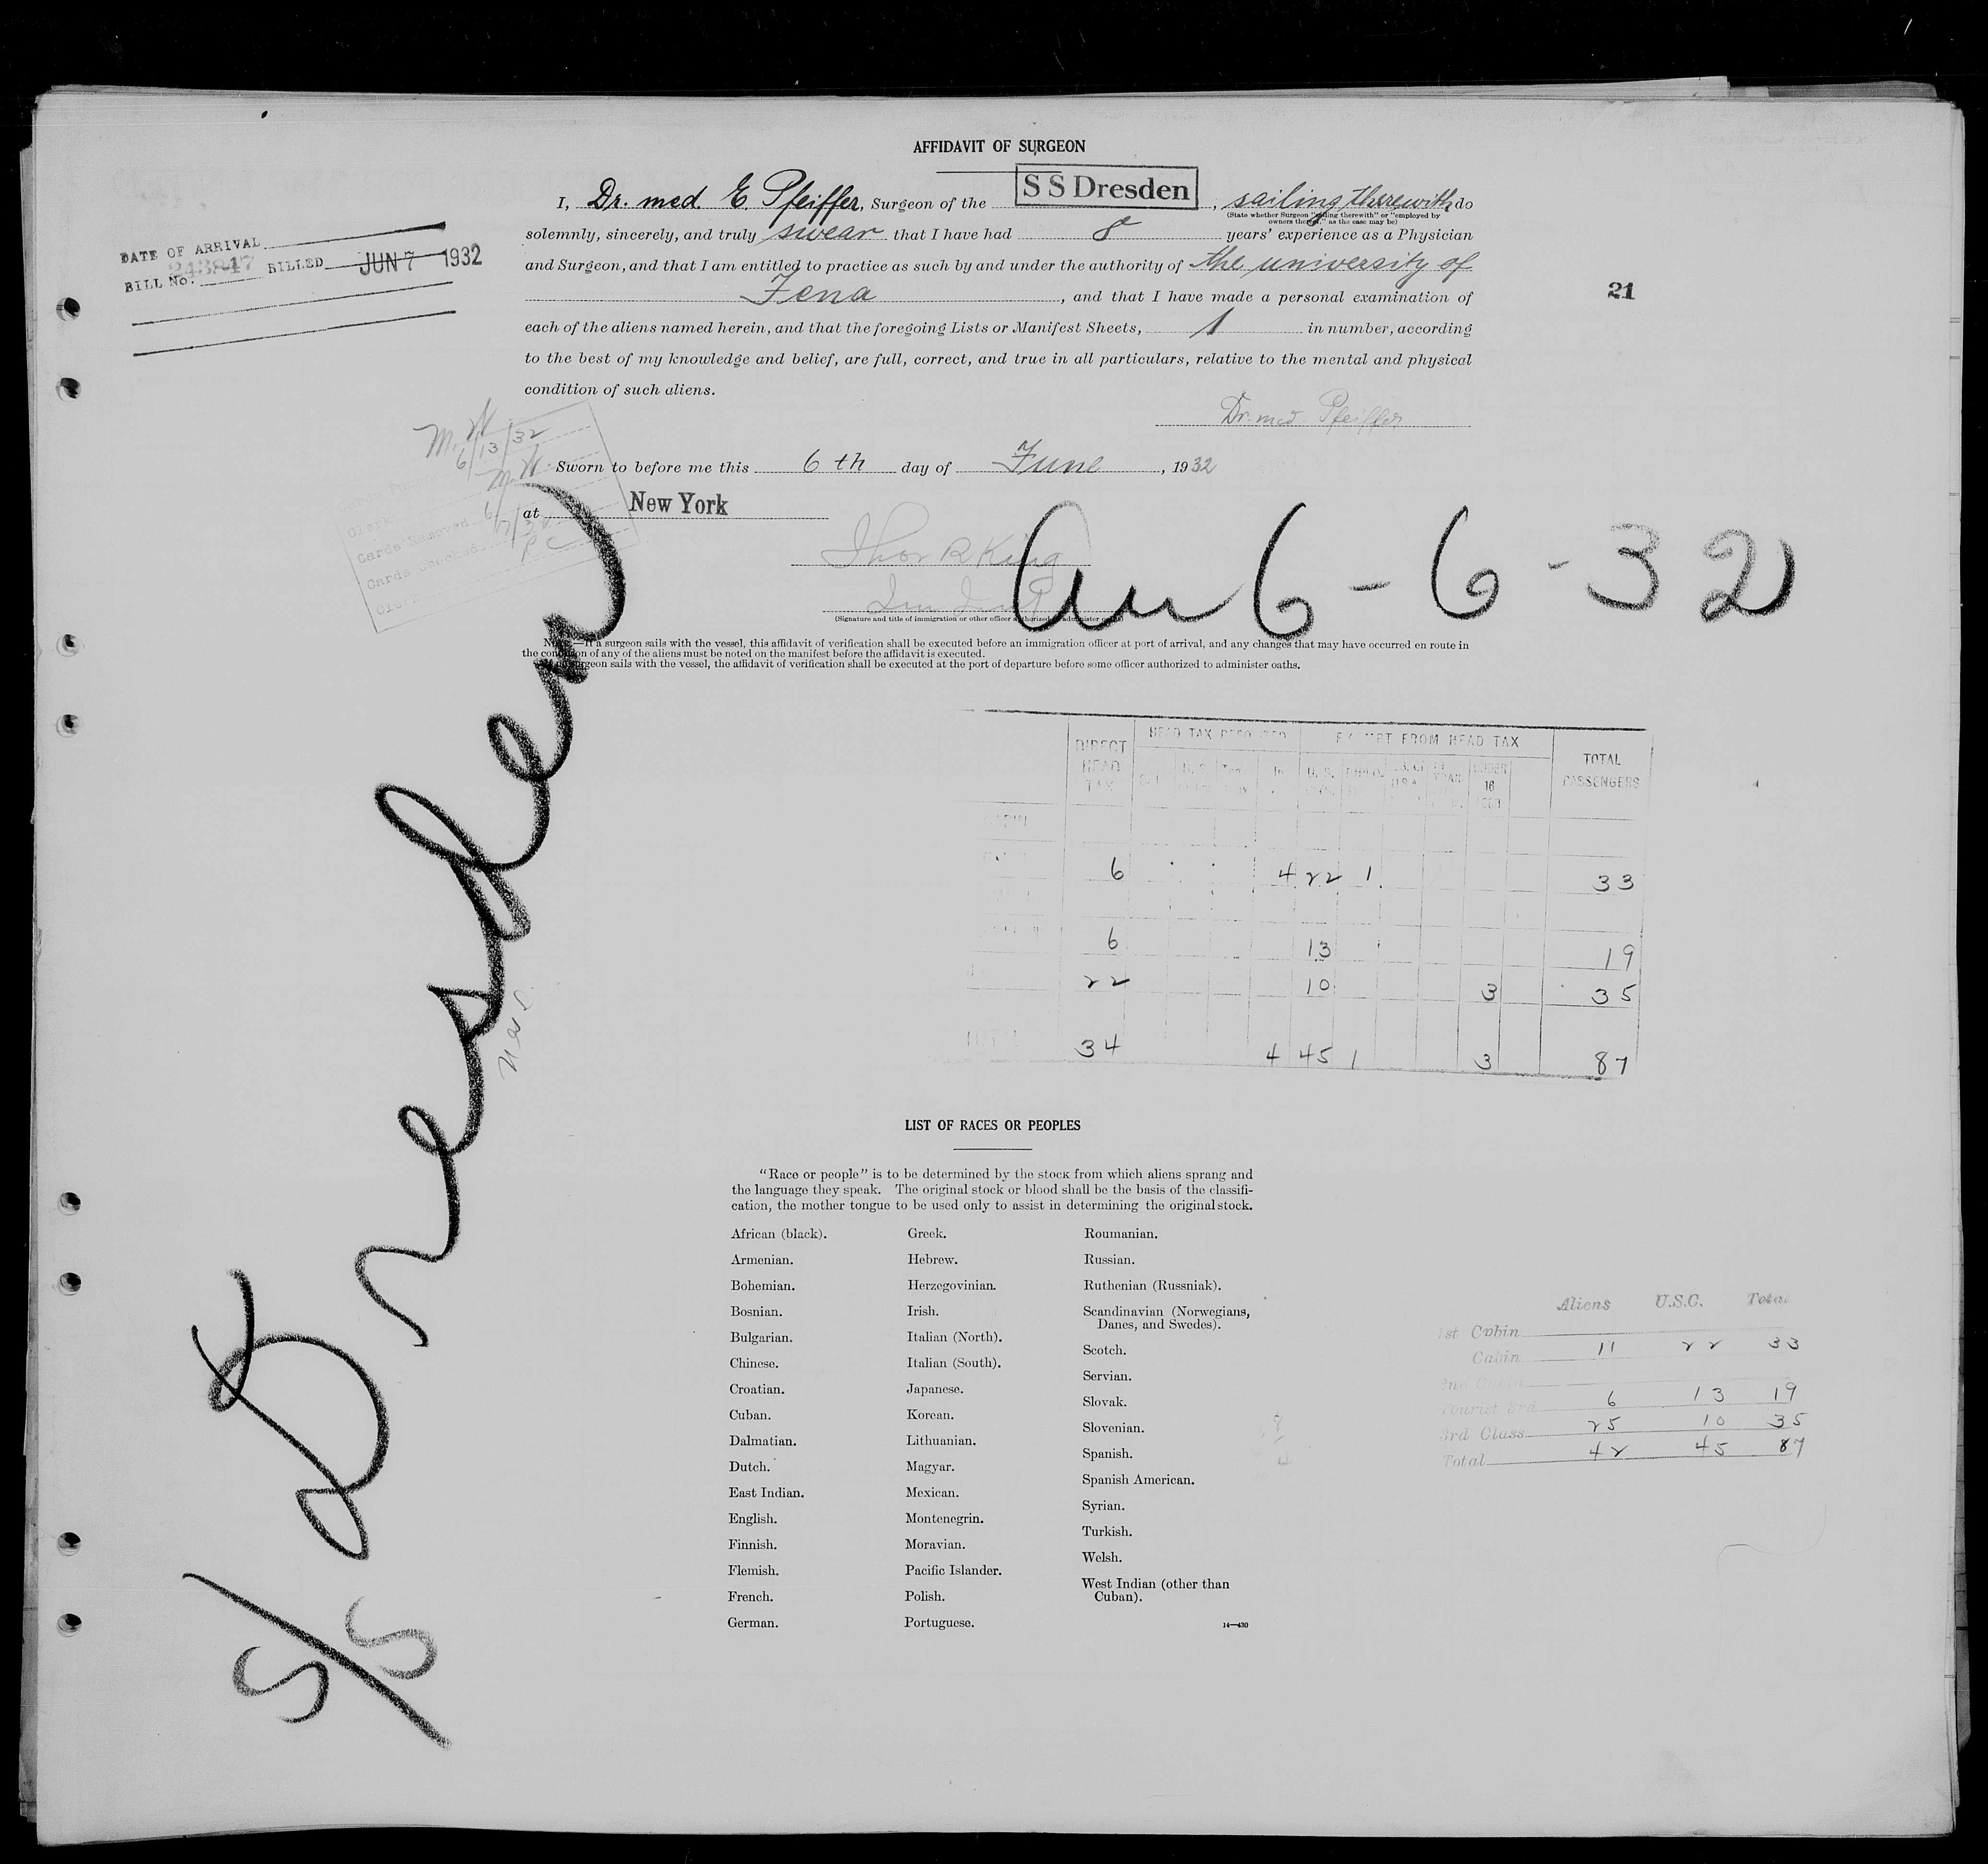 AFFIDAVIT OF SURGEON
I, Dr. med. E. Pfeiffer, Surgeon of the SS Dresden, sailing therewith do
(State whether Surgeon "sailing therewith" or "employed by
owners thereof," as the case may be)
solemnly, sincerely, and truly swear that I have had 8 years' experience as a Physician
and Surgeon, and that I am entitled to practice as such by and under the authority of the university of
Jena, and that I have made a personal examination of
each of the aliens named herein, and that the foregoing Lists or Manifest Sheets, 1 in number, according
to the best of my knowledge and belief, are full, correct, and true in all particulars, relative to the mental and physical
condition of such aliens.
Dr. med. Pfeiffer
Sworn to before me this 6th day of June, 1932
at New York
DATE OF ARRIVAL
BILL No. BILLED JUN 7 1932
21
M. W.
6/13/32
Clerk
Cards Removed
Cards Checked
Clerk
Thos R King
6-6-32
(Signature and title of immigration or other officer authorized to administer oaths)
NOTE.—If a surgeon sails with the vessel, this affidavit of verification shall be executed before an immigration officer at port of arrival, and any changes that may have occurred en route in
the condition of any of the aliens must be noted on the manifest before the affidavit is executed.
surgeon sails with the vessel, the affidavit of verification shall be executed at the port of departure before some officer authorized to administer oaths.
S/S Dresden
DIRECT HEAD TAX HEAD TAX EXEMPT FROM HEAD TAX TOTAL PASSENGERS
U.S. UNDER 16
6 4 22 1 33
6 13 19
22 10 3 35
34 4 45 1 3 87
LIST OF RACES OR PEOPLES
"Race or people" is to be determined by the stock from which aliens sprang and
the language they speak. The original stock or blood shall be the basis of the classifi-
cation, the mother tongue to be used only to assist in determining the original stock.
African (black).
Armenian.
Bohemian.
Bosnian.
Bulgarian.
Chinese.
Croatian.
Cuban.
Dalmatian.
Dutch.
East Indian.
English.
Finnish.
Flemish.
French.
German.
Greek.
Hebrew.
Herzegovinian.
Irish.
Italian (North).
Italian (South).
Japanese.
Korean.
Lithuanian.
Magyar.
Mexican.
Montenegrin.
Moravian.
Pacific Islander.
Polish.
Portuguese.
Roumanian.
Russian.
Ruthenian (Russniak).
Scandinavian (Norwegians,
Danes, and Swedes).
Scotch.
Servian.
Slovak.
Slovenian.
Spanish.
Spanish American.
Syrian.
Turkish.
Welsh.
West Indian (other than
Cuban).
14—430
Aliens U.S.C. Total
1st Cabin
Cabin 11 22 33
2nd Cabin
Tourist 3rd 6 13 19
3rd Class 25 10 35
Total 42 45 87